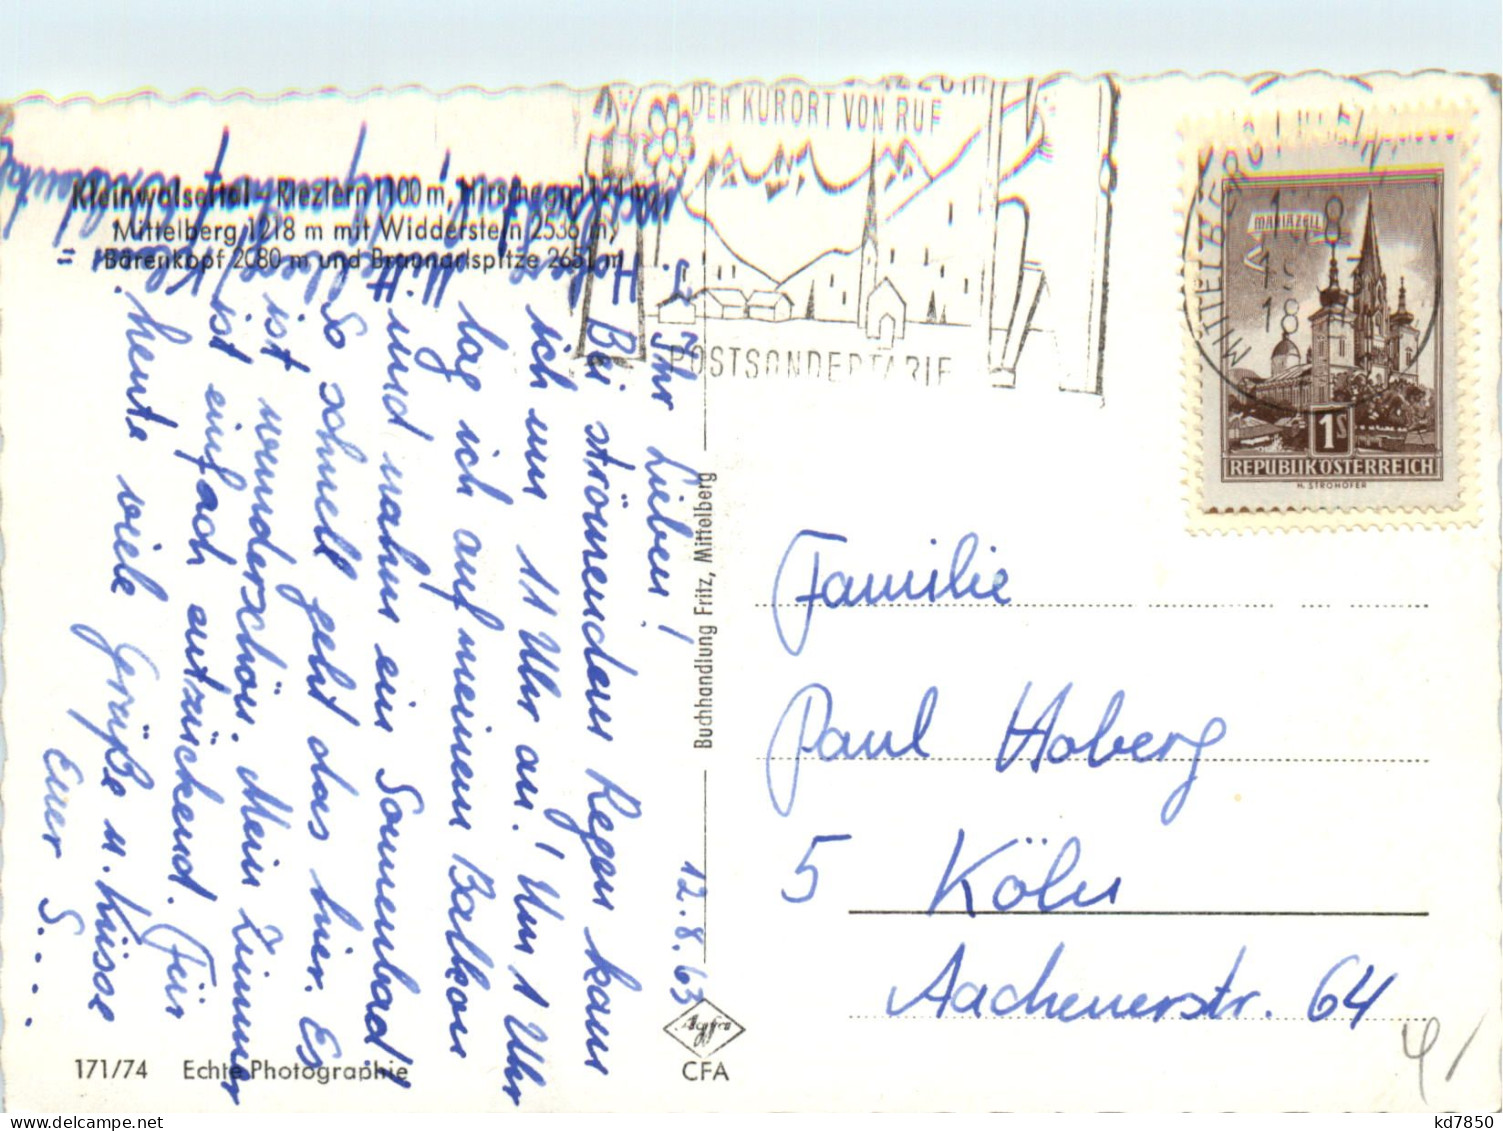 Kleinwalsertal - Riezlern 1100 m, Hirschegg 1124 m,
Mittelberg 1218 m mit Widderstein 2536 m,
Bärenkopf 2080 m und Braunarlspitze 2651 m
12.8.63
Ihr Lieben!
Bei strömendem Regen kam
ich um 11 Uhr an! Um 1 Uhr
lag ich auf meinem Balkon
und nahm ein Sonnenbad!
So schnell geht das hier. Es
ist wunderschön. Mein Zimmer
ist einfach entzückend. Für
heute viele Grüße u. Küsse
Euer S...
171/74 Echte Photographie
Buchhandlung Fritz, Mittelberg
Agfa
CFA
DER KURORT VON RUF
POSTSONDERTARIF
MITTELBERG
18
MARIAZELL
1S
REPUBLIK ÖSTERREICH
H. STROHOFER
Familie
Paul Hoberg
5 Köln
Aachenerstr. 64
4/
kd7850